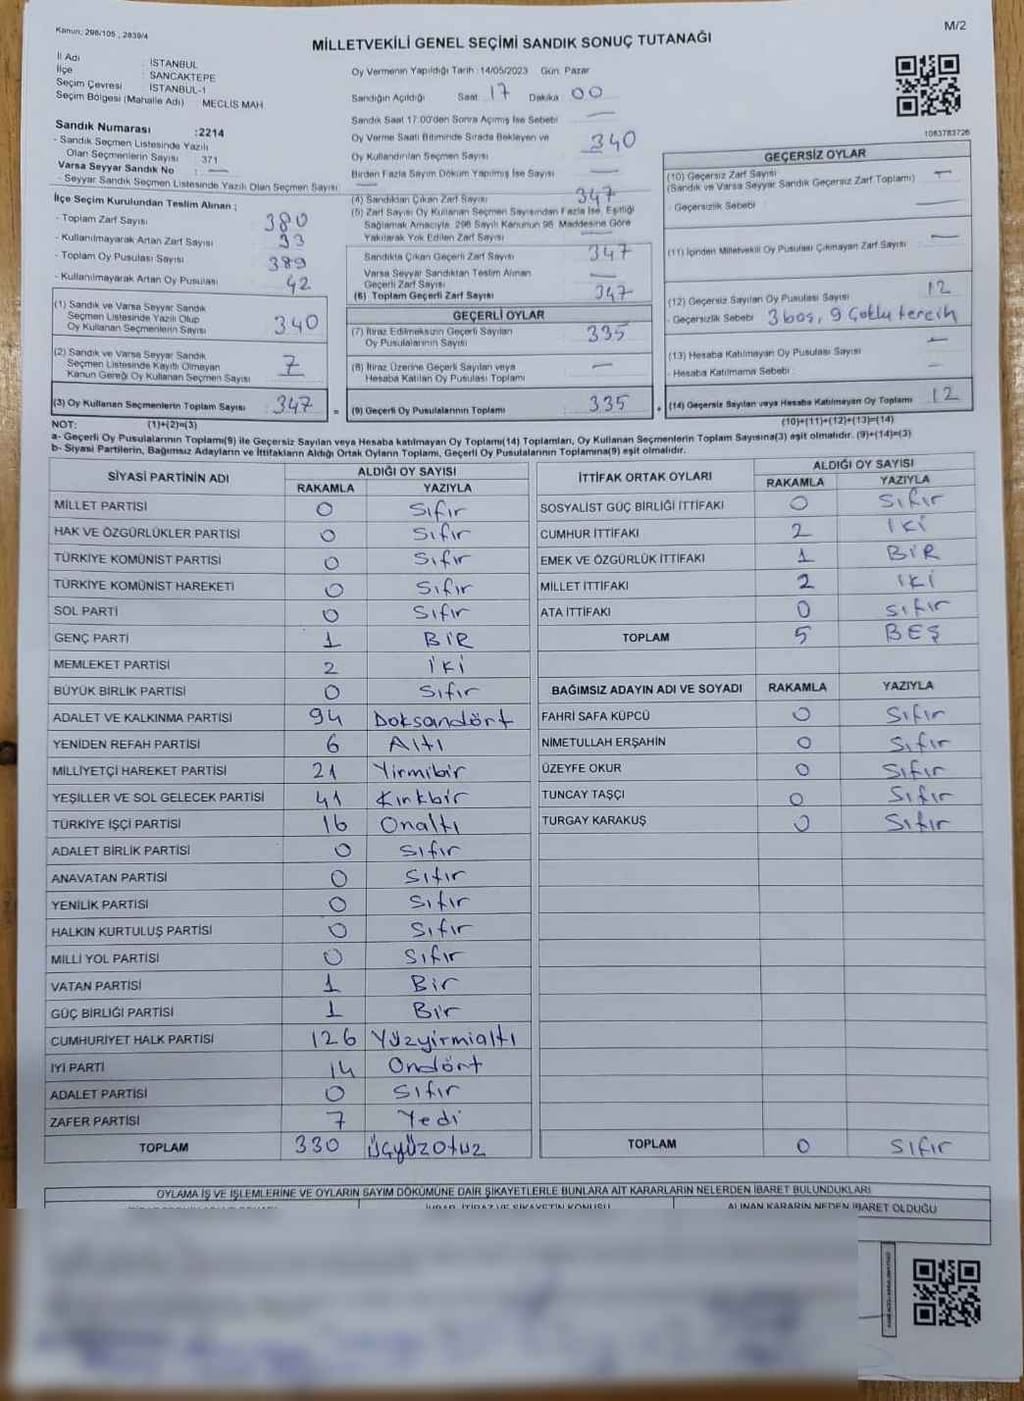 Kanun: 298/105 , 2839/4
M/2
MİLLETVEKİLİ GENEL SEÇİMİ SANDIK SONUÇ TUTANAĞI
İl Adı : İSTANBUL
İlçe : SANCAKTEPE
Seçim Çevresi : İSTANBUL-1
Seçim Bölgesi (Mahalle Adı) : MECLİS MAH
Sandık Numarası :2214
- Sandık Seçmen Listesinde Yazılı
Olan Seçmenlerin Sayısı : 371
Varsa Seyyar Sandık No : —
- Seyyar Sandık Seçmen Listesinde Yazılı Olan Seçmen Sayısı : —
İlçe Seçim Kurulundan Teslim Alınan ;
- Toplam Zarf Sayısı : 380
- Kullanılmayarak Artan Zarf Sayısı : 33
- Toplam Oy Pusulası Sayısı : 389
- Kullanılmayarak Artan Oy Pusulası : 42
(1) Sandık ve Varsa Seyyar Sandık
Seçmen Listesinde Yazılı Olup
Oy Kullanan Seçmenlerin Sayısı : 340
(2) Sandık ve Varsa Seyyar Sandık
Seçmen Listesinde Kayıtlı Olmayan
Kanun Gereği Oy Kullanan Seçmen Sayısı : 7
(3) Oy Kullanan Seçmenlerin Toplam Sayısı : 347 =
Oy Vermenin Yapıldığı Tarih : 14/05/2023 Gün: Pazar
Sandığın Açıldığı Saat 17 Dakika 00
Sandık Saat 17:00'den Sonra Açılmış İse Sebebi —
Oy Verme Saati Bitiminde Sırada Bekleyen ve
Oy Kullandırılan Seçmen Sayısı 340
Birden Fazla Sayım Döküm Yapılmış İse Sayısı —
(4) Sandıktan Çıkan Zarf Sayısı 347
(5) Zarf Sayısı Oy Kullanan Seçmen Sayısından Fazla İse, Eşitliği
Sağlamak Amacıyla, 298 Sayılı Kanunun 98. Maddesine Göre
Yakılarak Yok Edilen Zarf Sayısı —
Sandıkta Çıkan Geçerli Zarf Sayısı : 347
Varsa Seyyar Sandıktan Teslim Alınan
Geçerli Zarf Sayısı : —
(6) Toplam Geçerli Zarf Sayısı : 347
GEÇERLİ OYLAR
(7) İtiraz Edilmeksizin Geçerli Sayılan
Oy Pusulalarının Sayısı : 335
(8) İtiraz Üzerine Geçerli Sayılan veya
Hesaba Katılan Oy Pusulası Toplamı : —
(9) Geçerli Oy Pusulalarının Toplamı : 335 +
1083783726
GEÇERSİZ OYLAR
(10) Geçersiz Zarf Sayısı : —
(Sandık ve Varsa Seyyar Sandık Geçersiz Zarf Toplamı)
- Geçersizlik Sebebi : —
(11) İçinden Milletvekili Oy Pusulası Çıkmayan Zarf Sayısı : —
(12) Geçersiz Sayılan Oy Pusulası Sayısı : 12
- Geçersizlik Sebebi : 3 boş, 9 Çoklu tercih
(13) Hesaba Katılmayan Oy Pusulası Sayısı : —
- Hesaba Katılmama Sebebi : —
(14) Geçersiz Sayılan veya Hesaba Katılmayan Oy Toplamı : 12
NOT: (1)+(2)=(3) (10)+(11)+(12)+(13)=(14)
a- Geçerli Oy Pusulalarının Toplamı(9) ile Geçersiz Sayılan veya Hesaba katılmayan Oy Toplamı(14) Toplamları, Oy Kullanan Seçmenlerin Toplam Sayısına(3) eşit olmalıdır. (9)+(14)=(3)
b- Siyasi Partilerin, Bağımsız Adayların ve İttifakların Aldığı Ortak Oyların Toplamı, Geçerli Oy Pusulalarının Toplamına(9) eşit olmalıdır.
SİYASİ PARTİNİN ADI ALDIĞI OY SAYISI
RAKAMLA YAZIYLA
MİLLET PARTİSİ 0 Sıfır
HAK VE ÖZGÜRLÜKLER PARTİSİ 0 Sıfır
TÜRKİYE KOMÜNİST PARTİSİ 0 Sıfır
TÜRKİYE KOMÜNİST HAREKETİ 0 Sıfır
SOL PARTİ 0 Sıfır
GENÇ PARTİ 1 BİR
MEMLEKET PARTİSİ 2 İKİ
BÜYÜK BİRLİK PARTİSİ 0 Sıfır
ADALET VE KALKINMA PARTİSİ 94 Doksandört
YENİDEN REFAH PARTİSİ 6 Altı
MİLLİYETÇİ HAREKET PARTİSİ 21 Yirmibir
YEŞİLLER VE SOL GELECEK PARTİSİ 41 Kırkbir
TÜRKİYE İŞÇİ PARTİSİ 16 Onaltı
ADALET BİRLİK PARTİSİ 0 Sıfır
ANAVATAN PARTİSİ 0 Sıfır
YENİLİK PARTİSİ 0 Sıfır
HALKIN KURTULUŞ PARTİSİ 0 Sıfır
MİLLİ YOL PARTİSİ 0 Sıfır
VATAN PARTİSİ 1 Bir
GÜÇ BİRLİĞİ PARTİSİ 1 Bir
CUMHURİYET HALK PARTİSİ 126 Yüzyirmialtı
İYİ PARTİ 14 Ondört
ADALET PARTİSİ 0 Sıfır
ZAFER PARTİSİ 7 Yedi
TOPLAM 330 Üçyüzotuz
İTTİFAK ORTAK OYLARI ALDIĞI OY SAYISI
RAKAMLA YAZIYLA
SOSYALİST GÜÇ BİRLİĞİ İTTİFAKI 0 Sıfır
CUMHUR İTTİFAKI 2 İKİ
EMEK VE ÖZGÜRLÜK İTTİFAKI 1 BİR
MİLLET İTTİFAKI 2 İKİ
ATA İTTİFAKI 0 Sıfır
TOPLAM 5 BEŞ
BAĞIMSIZ ADAYIN ADI VE SOYADI RAKAMLA YAZIYLA
FAHRİ SAFA KÜPCÜ 0 Sıfır
NİMETULLAH ERŞAHİN 0 Sıfır
ÜZEYFE OKUR 0 Sıfır
TUNCAY TAŞÇI 0 Sıfır
TURGAY KARAKUŞ 0 Sıfır
TOPLAM 0 Sıfır
OYLAMA İŞ VE İŞLEMLERİNE VE OYLARIN SAYIM DÖKÜMÜNE DAİR ŞİKAYETLERLE BUNLARA AİT KARARLARIN NELERDEN İBARET BULUNDUKLARI
İHBAR, İTİRAZ VE ŞİKAYETİN KONUSU ALINAN KARARIN NEDEN İBARET OLDUĞU